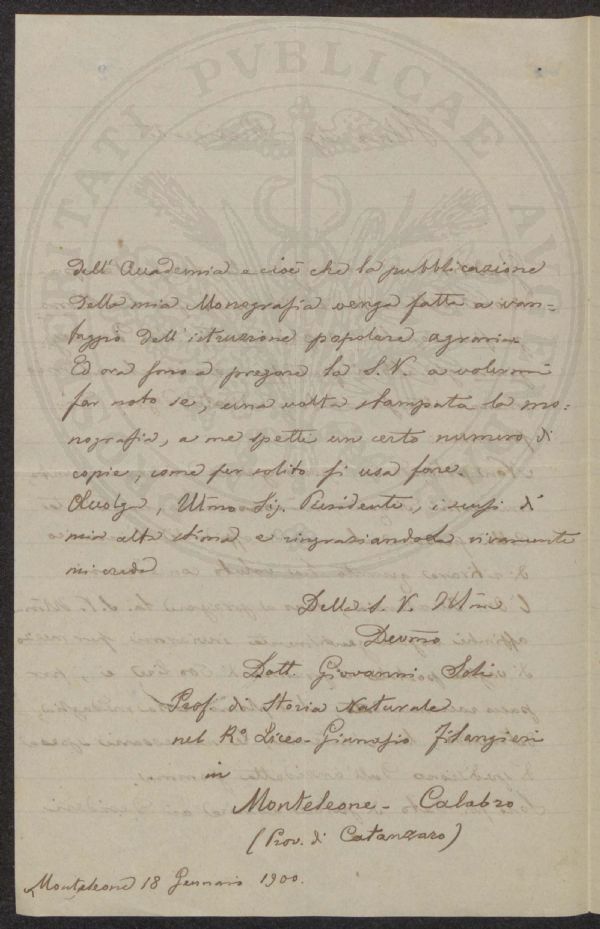 dell'Accademia e cioè che la pubblicazione
della mia Monografia venga fatta a van=
taggio dell'istruzione popolare agraria.
Ed ora sono a pregare la S. V. a volermi
far noto se, una volta stampata la mo=
nografia, a me spetti un certo numero di
copie, come per solito si usa fare.
Accolga, Illmo Sig. Presidente, i sensi di
mia alta stima e ringraziandola vivamente
mi creda
Della S. V. Illma
Devmo
Dott. Giovanni Soli
Prof. di Storia Naturale
nel Ro Liceo-Ginnasio Filangieri
in
Monteleone - Calabro
(Prov. di Catanzaro)
Monteleone 18 Gennaio 1900.
PVBLICAE